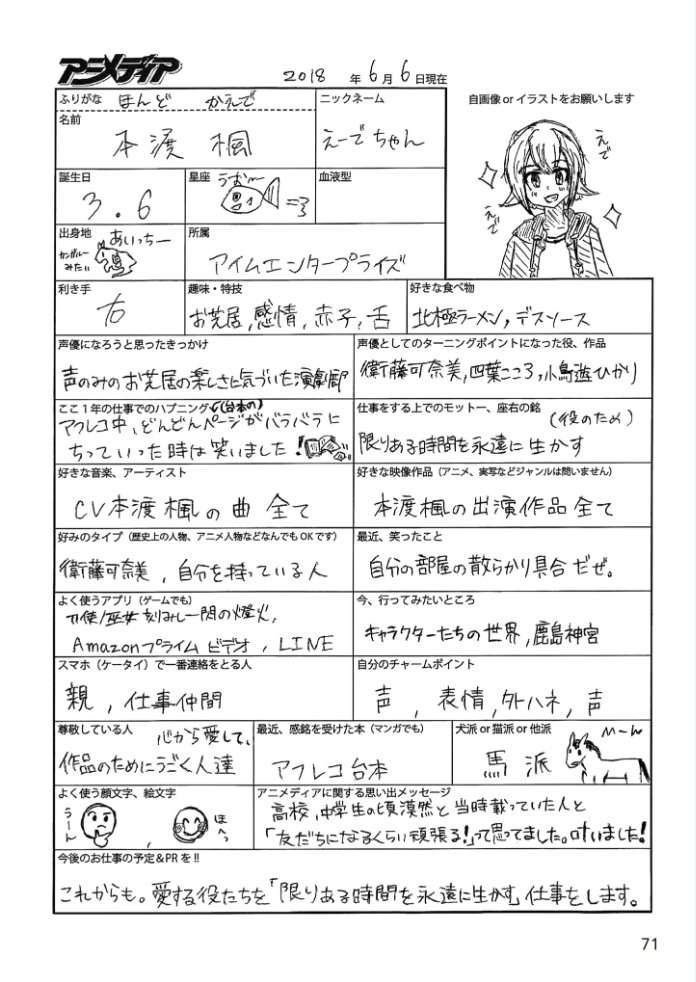 アニメディア
2018 年 6月 6日現在
ふりがな ほんど かえで
名前
本渡 楓
ニックネーム
えーでちゃん
自画像 or イラストをお願いします
えで
えで
誕生日
3.6
星座 うおー
血液型
出身地 あいっちー
カンガルーみたい
所属
アイムエンタープライズ
利き手
右
趣味・特技
お芝居,感情,赤子,舌
好きな食べ物
北極ラーメン,デスソース
声優になろうと思ったきっかけ
声のみのお芝居の楽しさに気づいた演劇部
声優としてのターニングポイントになった役、作品
衛藤可奈美,四葉こころ,小鳥遊ひかり
ここ1年の仕事でのハプニング (台本の)
アフレコ中、どんどんページがバラバラに
ちっていった時は笑いました!
仕事をする上でのモットー、座右の銘
(役のため)
限りある時間を永遠に生かす
好きな音楽、アーティスト
CV本渡楓の曲全て
好きな映像作品(アニメ、実写などジャンルは問いません)
本渡楓の出演作品全て
好みのタイプ(歴史上の人物、アニメ人物などなんでもOKです)
衛藤可奈美,自分を持っている人
最近、笑ったこと
自分の部屋の散らかり具合だぜ。
よく使うアプリ(ゲームでも)
刀使ノ巫女 刻みし一閃の燈火,
Amazonプライムビデオ, LINE
今、行ってみたいところ
キャラクターたちの世界,鹿島神宮
スマホ(ケータイ)で一番連絡をとる人
親,仕事仲間
自分のチャームポイント
声,表情,外ハネ,声
尊敬している人
心から愛して、
作品のためにうごく人達
最近、感銘を受けた本(マンガでも)
アフレコ台本
犬派 or 猫派 or 他派
馬派
よく使う顔文字、絵文字
うーん , ほへっ
アニメディアに関する思い出メッセージ
高校,中学生の頃漠然と当時載っていた人と
「友だちになるくらい頑張る!」って思ってました。叶いました!
今後のお仕事の予定&PRを!!
これからも。愛する役たちを「限りある時間を永遠に生かす」仕事をします。
71